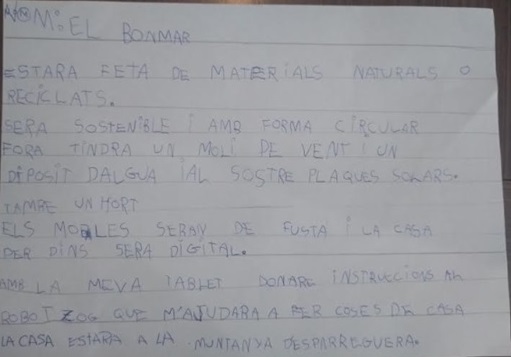 NOM: EL BONMAR
ESTARA FETA DE MATERIALS NATURALS O
RECICLATS.
SERA SOSTENIBLE I AMB FORMA CIRCULAR
FORA TINDRA UN MOLI DE VENT I UN
DIPOSIT DALGUA IAL SOSTRE PLAQUES SOLARS.
TAMBE UN HORT
ELS MOBLES SERAN DE FUSTA I LA CASA
PER DINS SERA DIGITAL.
AMB LA MEVA TABLET DONARE INSTRUCCIONS AL
ROBOT ZOG QUE M'AJUDARA A FER COSES DE CASA
LA CASA ESTARA A LA MUNTANYA DESPARREGUERA.